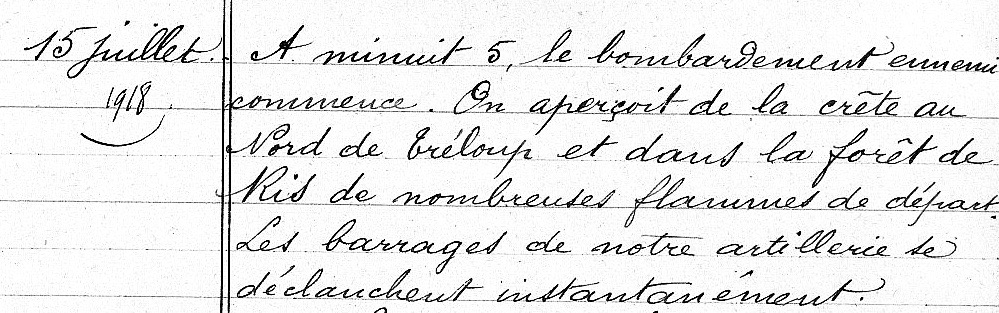 15 juillet. A minuit 5, le bombardement ennemi
1918. commence. On aperçoit de la crête au
Nord de Tréloup et dans la forêt de
Ris de nombreuses flammes de départ.
Les barrages de notre artillerie se
déclanchent instantanément.